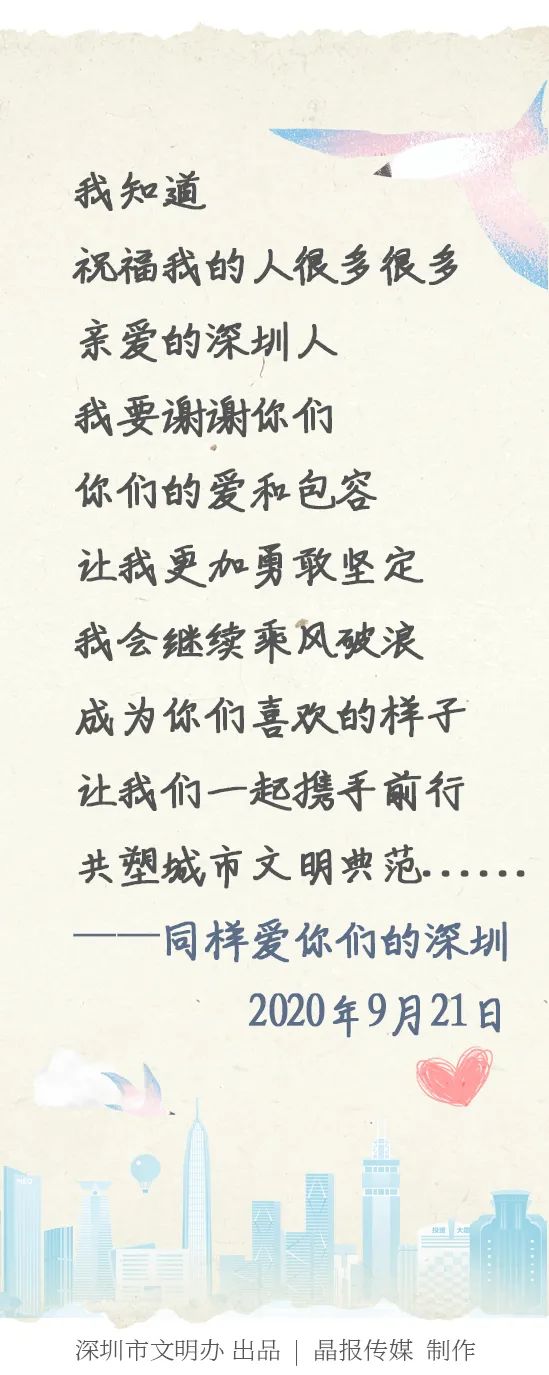 我知道
祝福我的人很多很多
亲爱的深圳人
我要谢谢你们
你们的爱和包容
让我更加勇敢坚定
我会继续乘风破浪
成为你们喜欢的样子
让我们一起携手前行
共塑城市文明典范......
——同样爱你们的深圳
2020年9月21日
深圳市文明办 出品 | 晶报传媒 制作